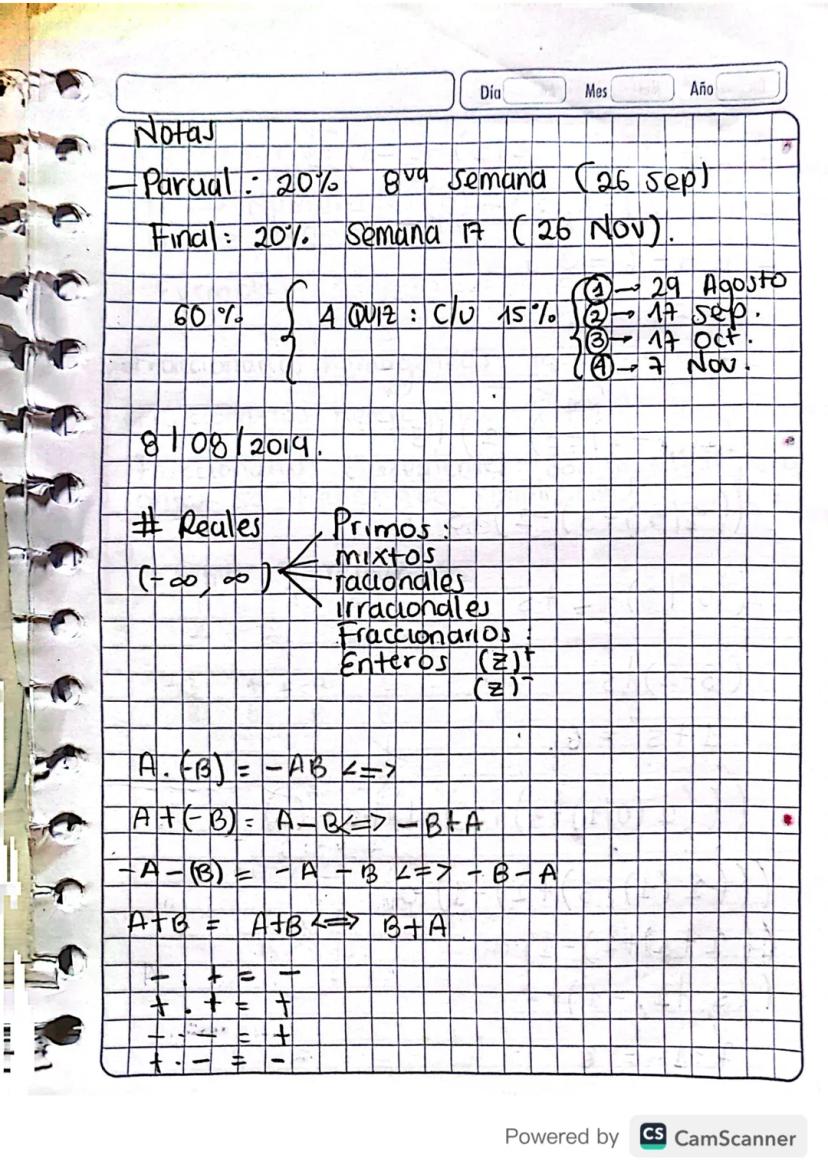 Día Mes Año
Notas
- Parcial : 20% 8va semana (26 sep)
Final : 20% Semana 17 (26 Nov).
60 % { 4 QUIZ : C/U 15%
① → 29 Agosto
② → 17 sep.
③ → 17 oct.
④ → 7 Nov.
8 / 08 / 2019.
# Reales
(-∞, ∞)
Primos :
mixtos
racionales
irracionales
Fraccionarios :
Enteros (Z)⁺
(Z)⁻
A . (-B) = -AB <=>
A + (-B) = A - B <=> - B + A
-A - (B) = - A - B <=> - B - A
A + B = A + B <=> B + A
- . + = -
+ . + = +
- . - = +
+ . - = -
Powered by CS CamScanner